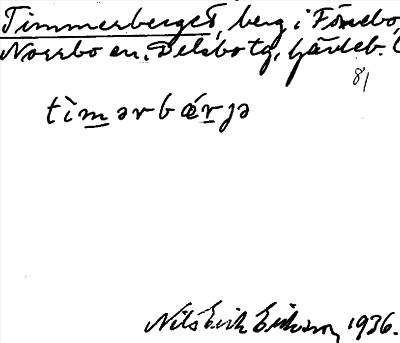 Timmerberget, berg i Fönebo,
Norrbo sn, Delsbo tg, Gävleb. l
81
tìmərbǽrjə
Nils Erik Eriksson, 1936.